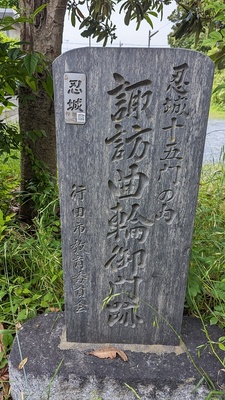 忍城十五門の内
諏訪曲輪御門跡
行田市教育委員会
忍城